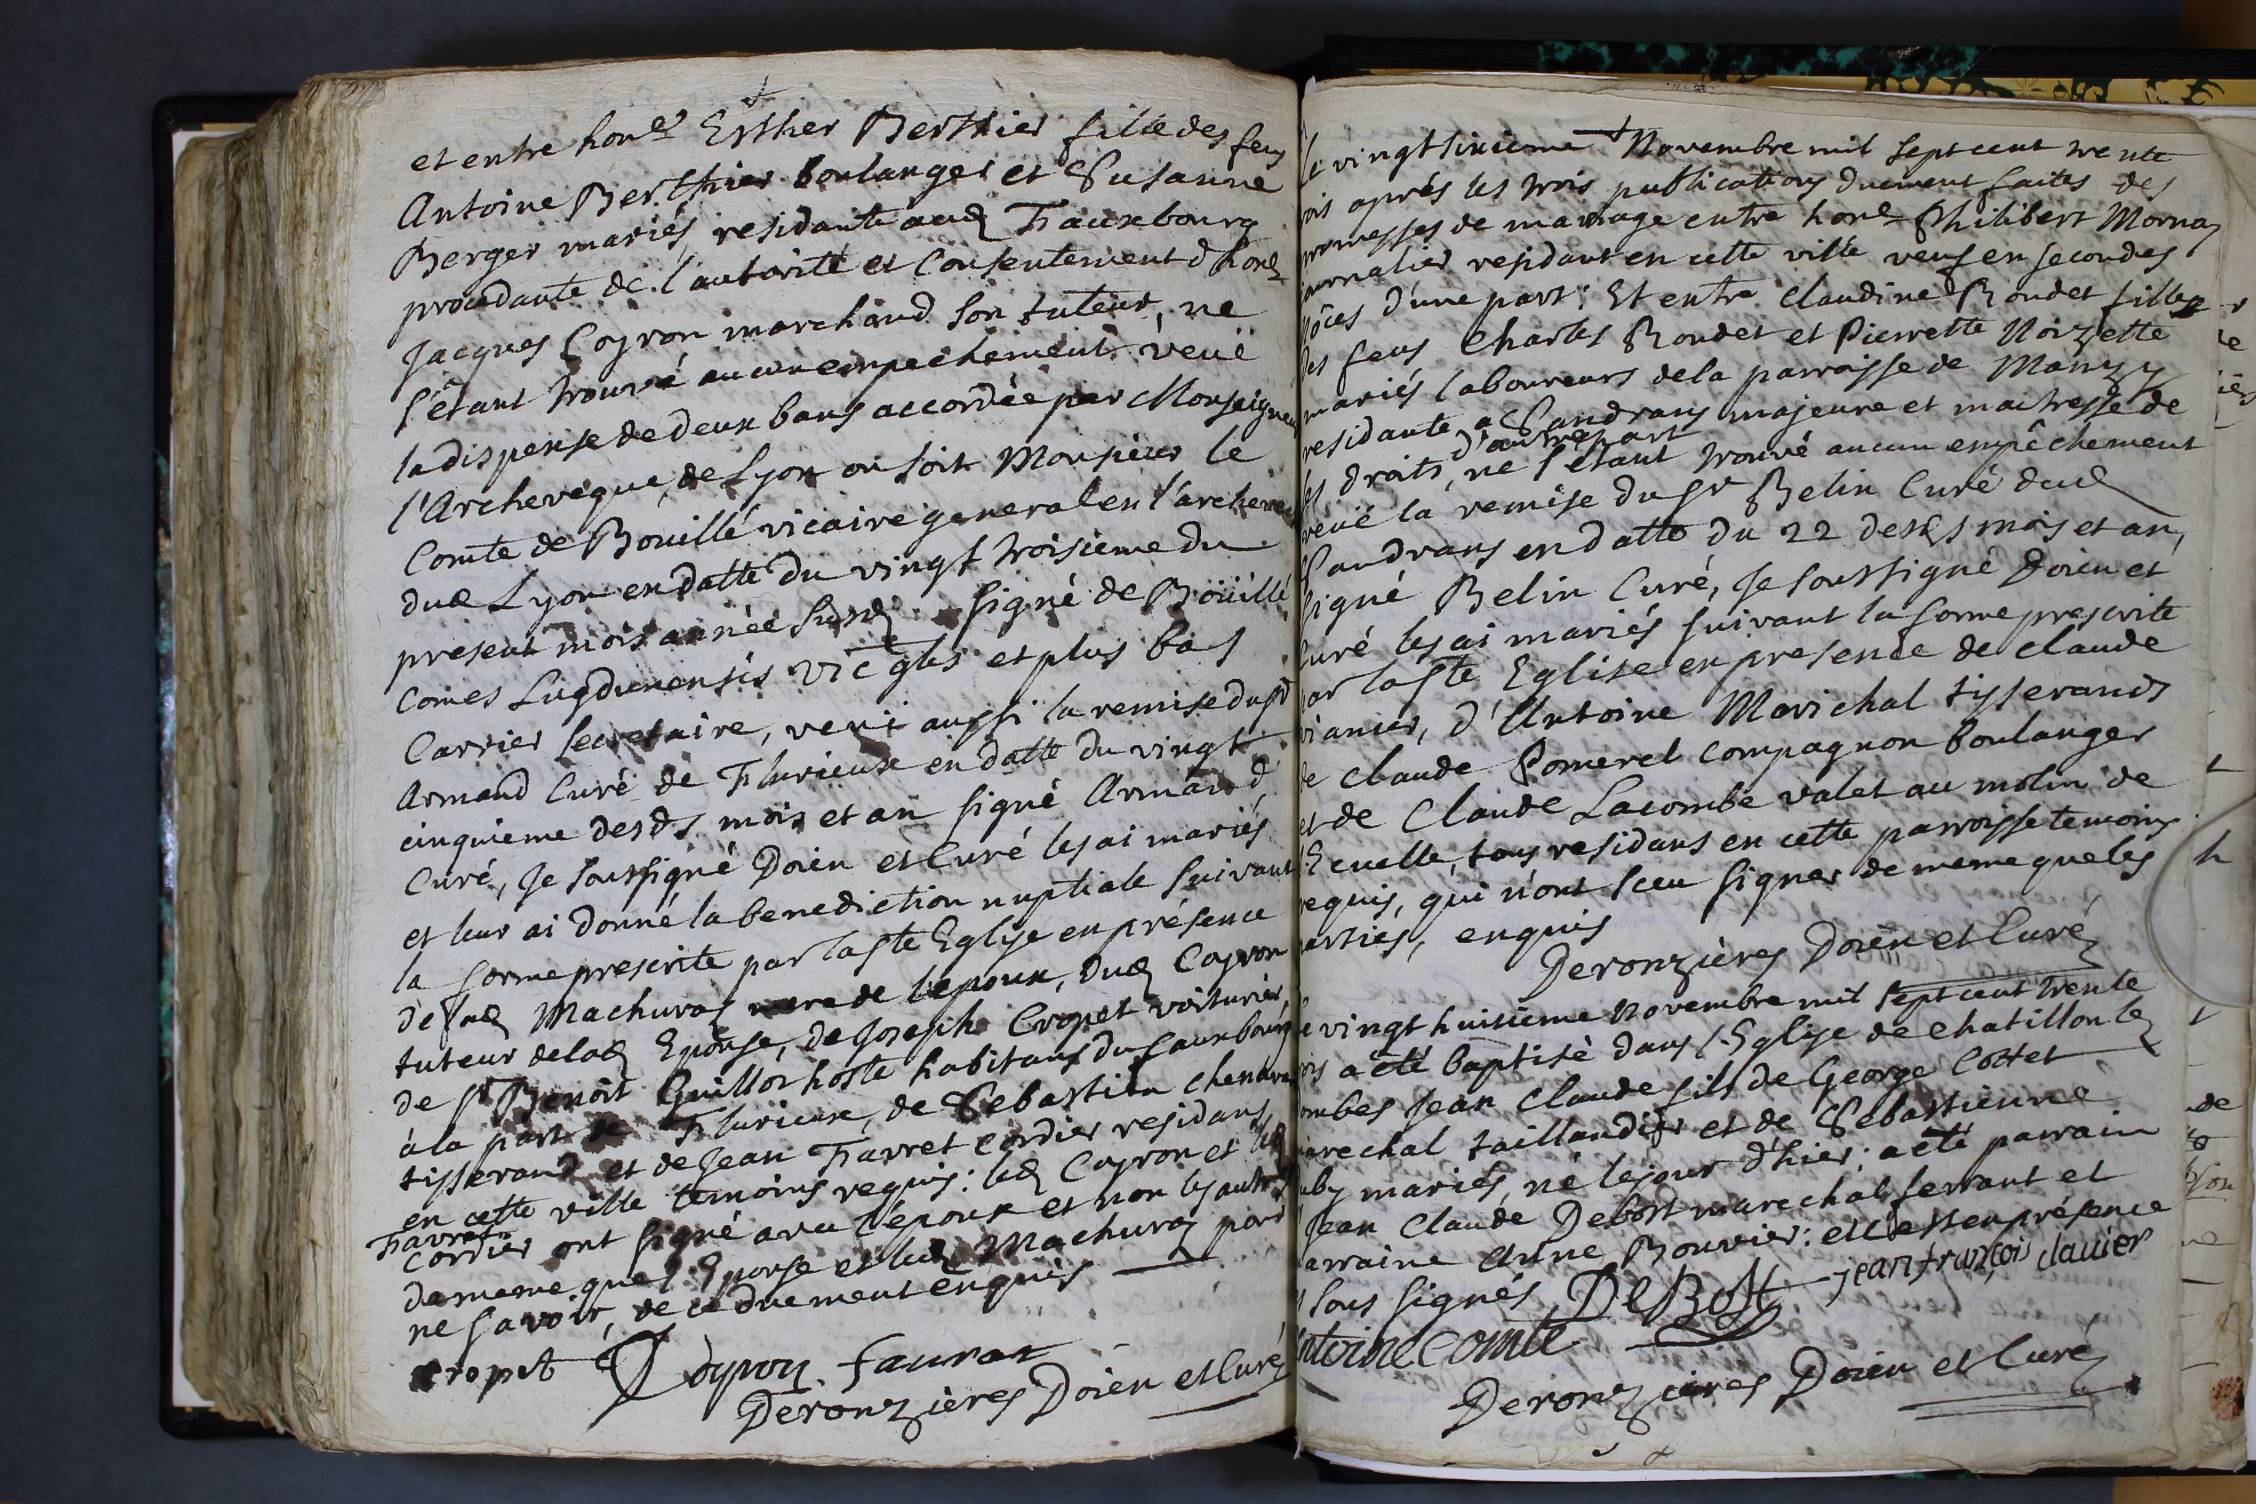 et entre hon^e Esther Berthier fille des feus
Antoine Berthier boulanger et Susanne
Berger mariés residante aud Fauxbourg
procedante de l'autorité et Consentement d'hon^e
Jacques Coyron marchand son tuteur, ne
s'étant trouvé aucun empechement, veüe
la dispense de deux bans accordée par Monseigneur
l'Archevêque de Lyon ou soit Monsieur le
Comte de Bouillé vicaire general en l'archevec
dud Lyon en datte du vingt troisieme du
present mois année susd signé de Boüillé
Comes Lugdunensis vic^e gls et plus bas
Carrier secretaire, veüe aussi la remise du S^r
Armand Curé de Flurieux en datte du vingt
cinquieme desds mois et an signé Armand
Curé, Je soussigné Doien et Curé les ai mariés
et leur ai donné la benediction nuptiale suivant
la forme prescrite par la Ste Eglise en présence
de lad Machuras mere de l'epoux, dud Coyron
tuteur de lad Epouse, de Joseph Cropet voiturier,
de S^r Benoît Guillot hoste habitans du fauxbourg
à la part de Flurieux, de Sebastien Chenava
tisserand et de Jean Favret cordier residans
en cette ville temoins requis: led Coyron et led
Favret
Cordier ont signé avec l'époux et non les autres
de meme que l'Epouse et lad Machuras pour
ne savoir, de ce duement enquis
cropet Coyron favrat
Deronzières Doien et Curé

Le vingt sixieme Novembre mil sept cent trente
rois après les trois publications duement faites des
promesses de mariage entre hon^e Philibert Mornay
journalier residant en cette ville veuf en secondes
nôces d'une part; Et entre Claudine Rondet fille
des feus Charles Rondet et Pierrette Noizette
mariés laboureurs de la parroisse de Manzy
residante a Sandrans majeure et maitresse de
d'autre part
ses droits, ne s'étant trouvé aucun empêchement
veüe la remise du S^r Belin Curé dud
Sandrans en datte du 22 desds mois et an,
signé Belin Curé, Je soussigné Doien et
Curé les ai mariés suivant la forme prescrite
par la Ste Eglise en presence de Claude
vianier, d'Antoine Marichal tisserands
de Claude Pomerel compagnon boulanger
et de Claude Lacombe valet au molin de
l'Ecuelle, tous residans en cette parroisse temoins
requis, qui n'ont sceu signer de meme que les
parties, enquis
Deronzières Doien et Curé
Le vingt huitieme Novembre mil sept cent trente
rois a été baptisé dans l'Eglise de Chatillon les
ombes Jean Claude fils de George Cottet
marechal taillandier et de Sebastienne
uby mariés, né le jour d'hier; a été parrain
Jean Claude Debost marechal ferrant et
marraine Anne Bouvier: et c'est en présence
sous signés DeBost jean françois clavier
Antoine Comte
Deronzières Doien et Curé